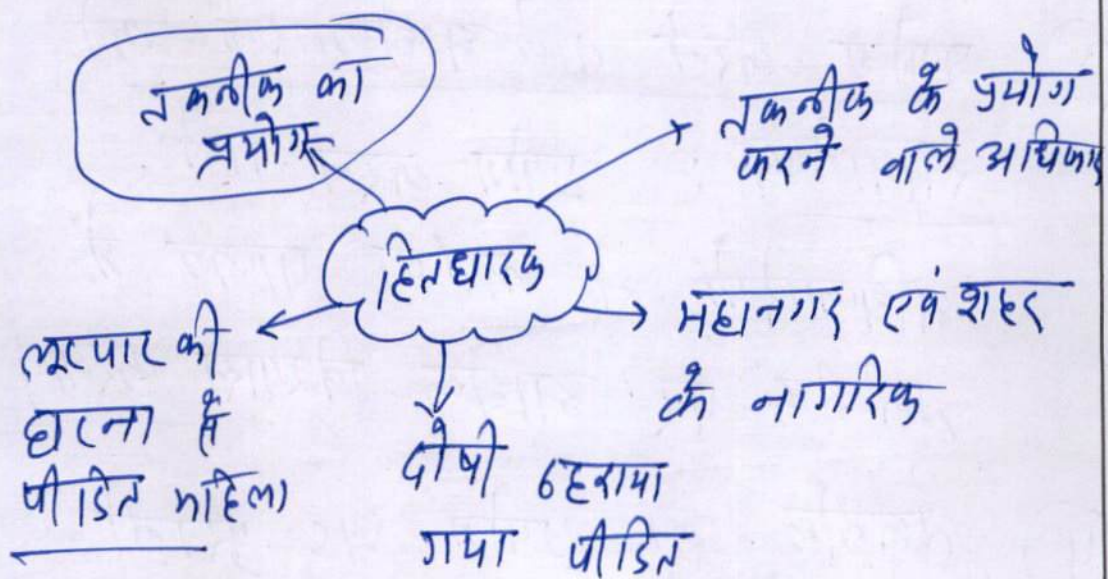 तकनीक का
प्रयोग
तकनीक के प्रयोग
करने वाले अधिकार
हितधारक
महानगर एवं शहर
के नागरिक
लूटपाट की
घटना से
पीडित महिला
दोषी ठहराया
गया पीडित